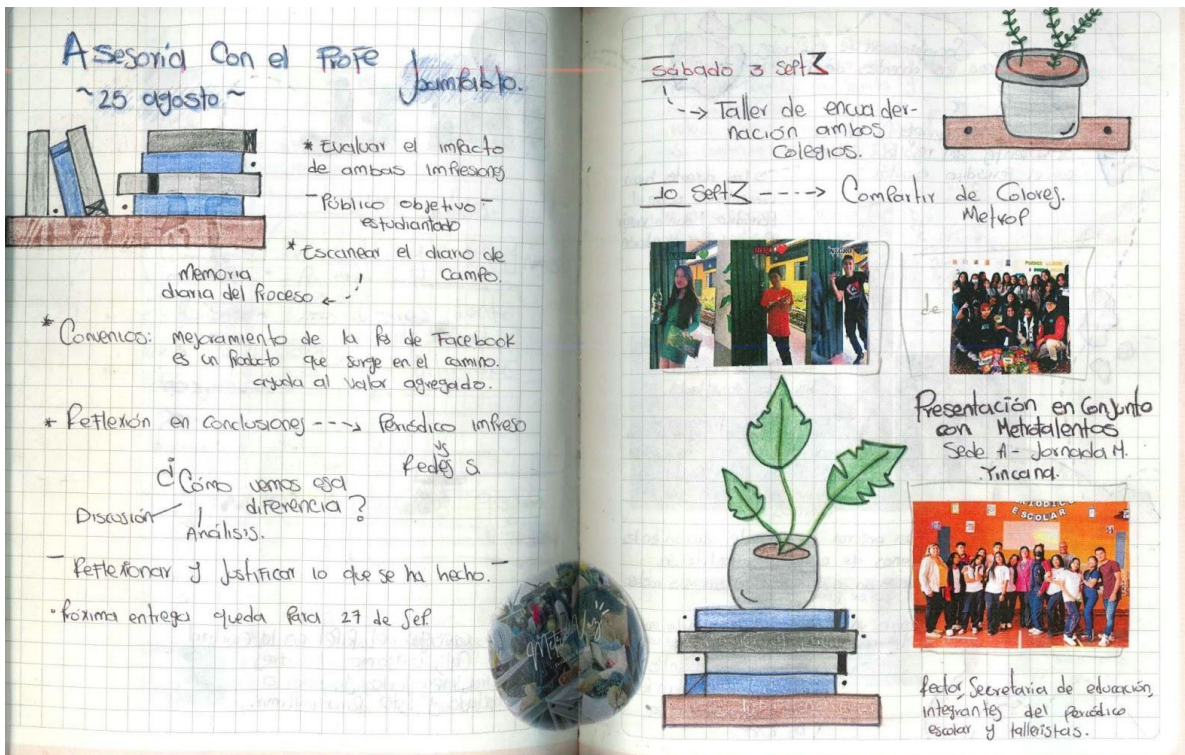 Asesoría Con el Profe
Juanpablo.
~ 25 agosto ~
* Evaluar el impacto
de ambas impresiones
- Público objetivo -
estudiantado
* Escanear el diario de
campo.
Memoria
diaria del Proceso
* Convenios: mejoramiento de la Ps de Facebook
es un Producto que surge en el camino.
ayuda al valor agregado.
* Reflexión en conclusiones ---> Periódico impreso
vs
Redes S.
¿Cómo vemos esa
diferencia?
Discusión
Análisis.
- Reflexionar y Justificar lo que se ha hecho. -
• Próxima entrega queda Para 27 de Sep.
Sábado 3 Sept
--> Taller de encuader-
nación ambos
Colegios.
10 Sept ----> Compartir de Colores.
Metrop
de
Presentación en Conjunto
con Metrotalentos
Sede A - Jornada M.
Yincana.
ESCOLAR
Rector, Secretaria de educación,
integrantes del Periódico
escolar y talleristas.